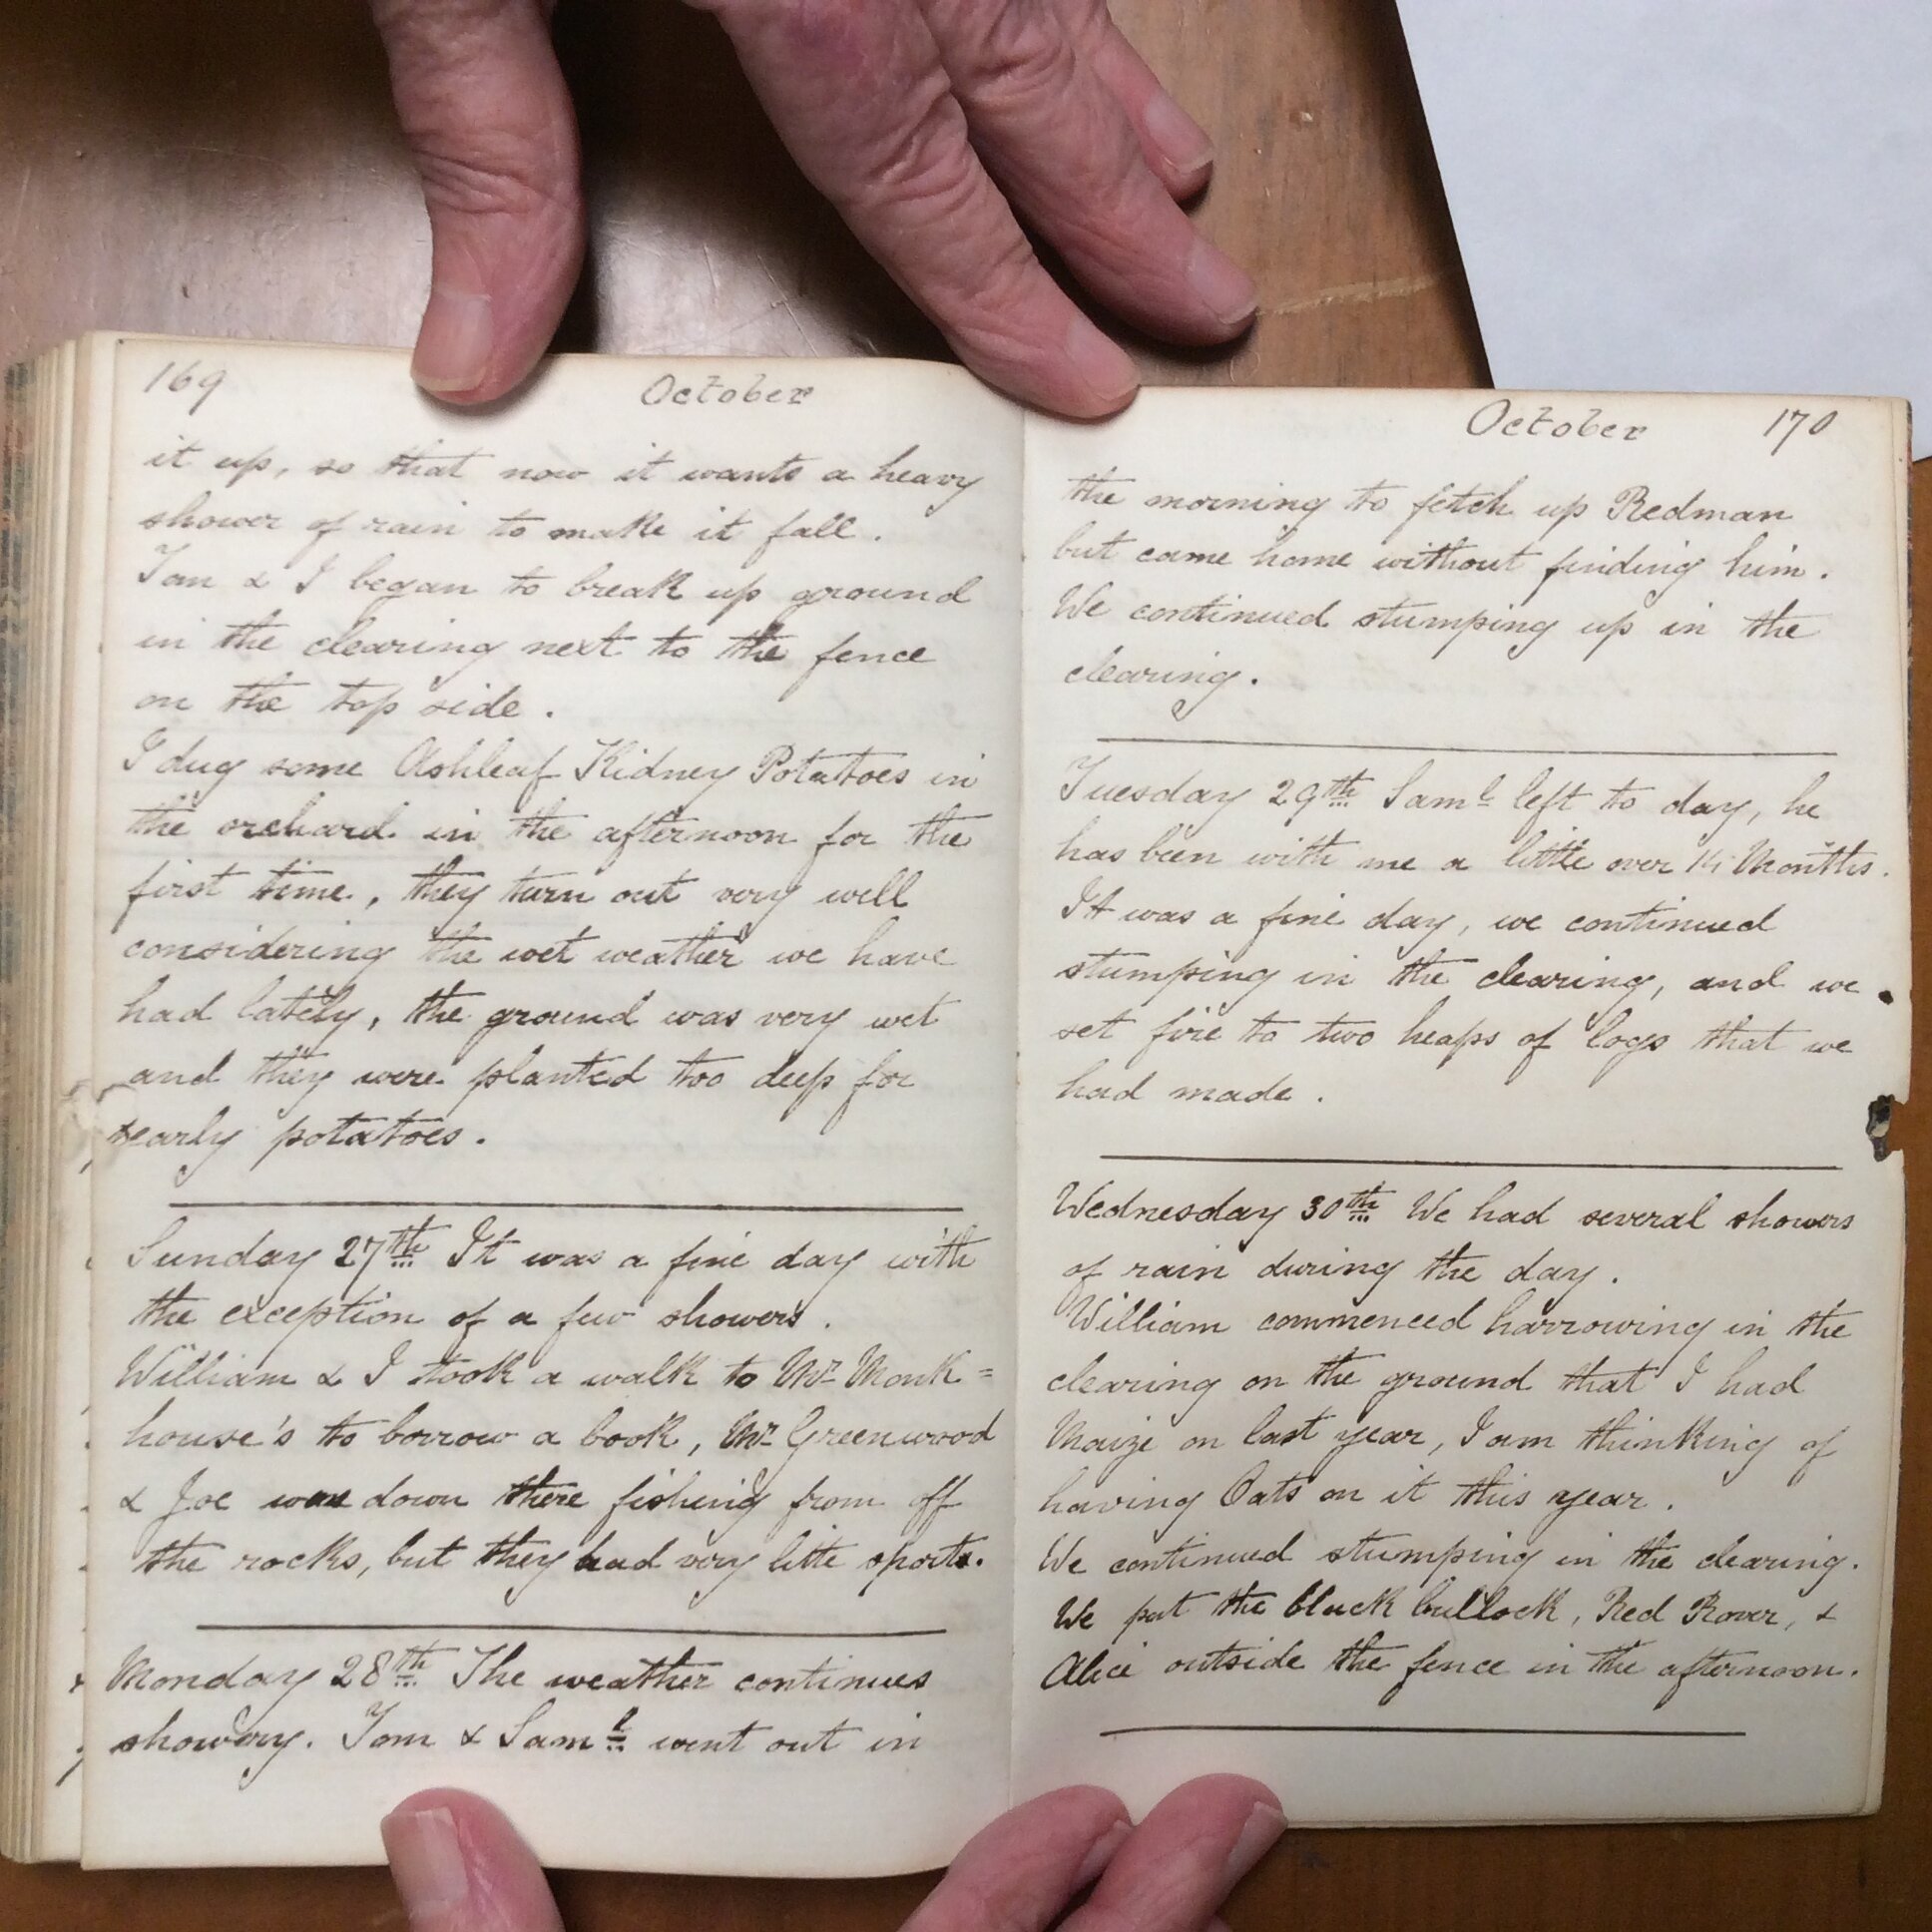 169 October
it up, so that now it wants a heavy
shower of rain to make it fall.
Tom & I began to break up ground
in the clearing next to the fence
on the top side.
I dug some Ashleaf Kidney Potatoes in
the orchard in the afternoon for the
first time, they turn out very well
considering the wet weather we have
had lately, the ground was very wet
and they were planted too deep for
early potatoes.
Sunday 27th It was a fine day with
the exception of a few showers.
William & I took a walk to Mr Monk=
house's to borrow a book, Mr Greenwood
& Joe were down there fishing from off
the rocks, but they had very litte sport.
Monday 28th The weather continues
showery. Tom & Saml went out in
October 170
the morning to fetch up Redman
but came home without finding him.
We continued stumping up in the
clearing.
Tuesday 29th Saml left to day, he
has been with me a little over 14 Months.
It was a fine day, we continued
stumping in the clearing, and we
set fire to two heaps of logs that we
had made.
Wednesday 30th We had several showers
of rain during the day.
William commenced harrowing in the
clearing on the ground that I had
Maize on last year, I am thinking of
having Oats on it this year.
We continued stumping in the clearing.
We put the black bullock, Red Rover, &
Alice outside the fence in the afternoon.